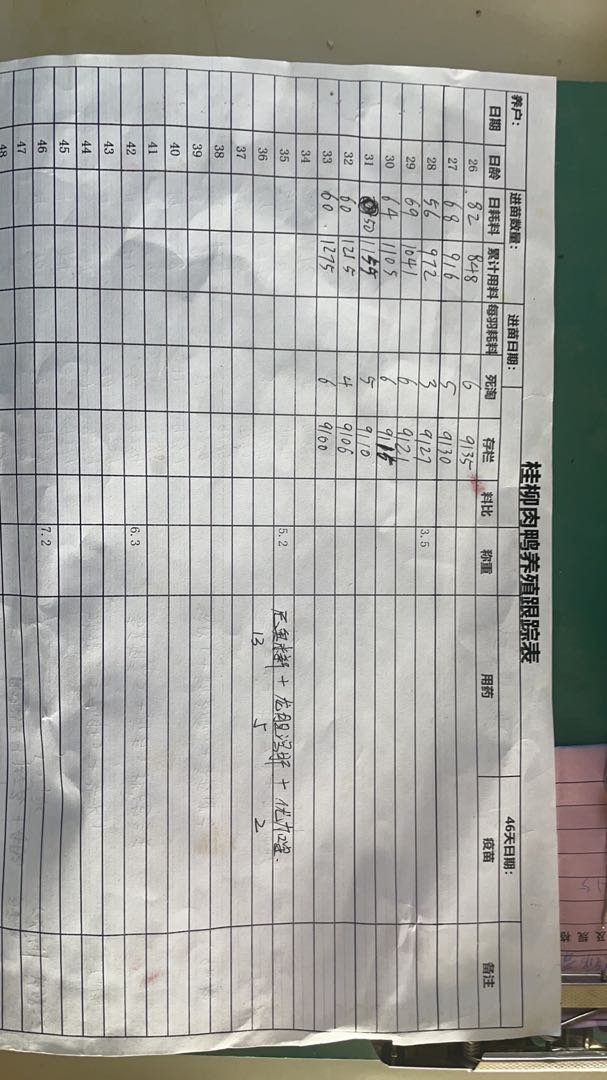 桂柳肉鸭养殖跟踪表
养户： 进苗数量： 进苗日期： 46天日期：
日期 日龄 日耗料 累计用料 每羽耗料 死淘 存栏 料比 称重 用药 疫苗 备注
26 82 848 6 9135
27 68 916 5 9130
28 56 972 3 9127 3.5
29 69 1041 6 9121
30 64 1105 6 9115
31 50 1155 5 9110
32 60 1215 4 9106
33 60 1275 6 9100
34
35 5.2
36 13 5 2
37
38
39
40
41
42 6.3
43
44
45
46 7.2
47
48
及规格